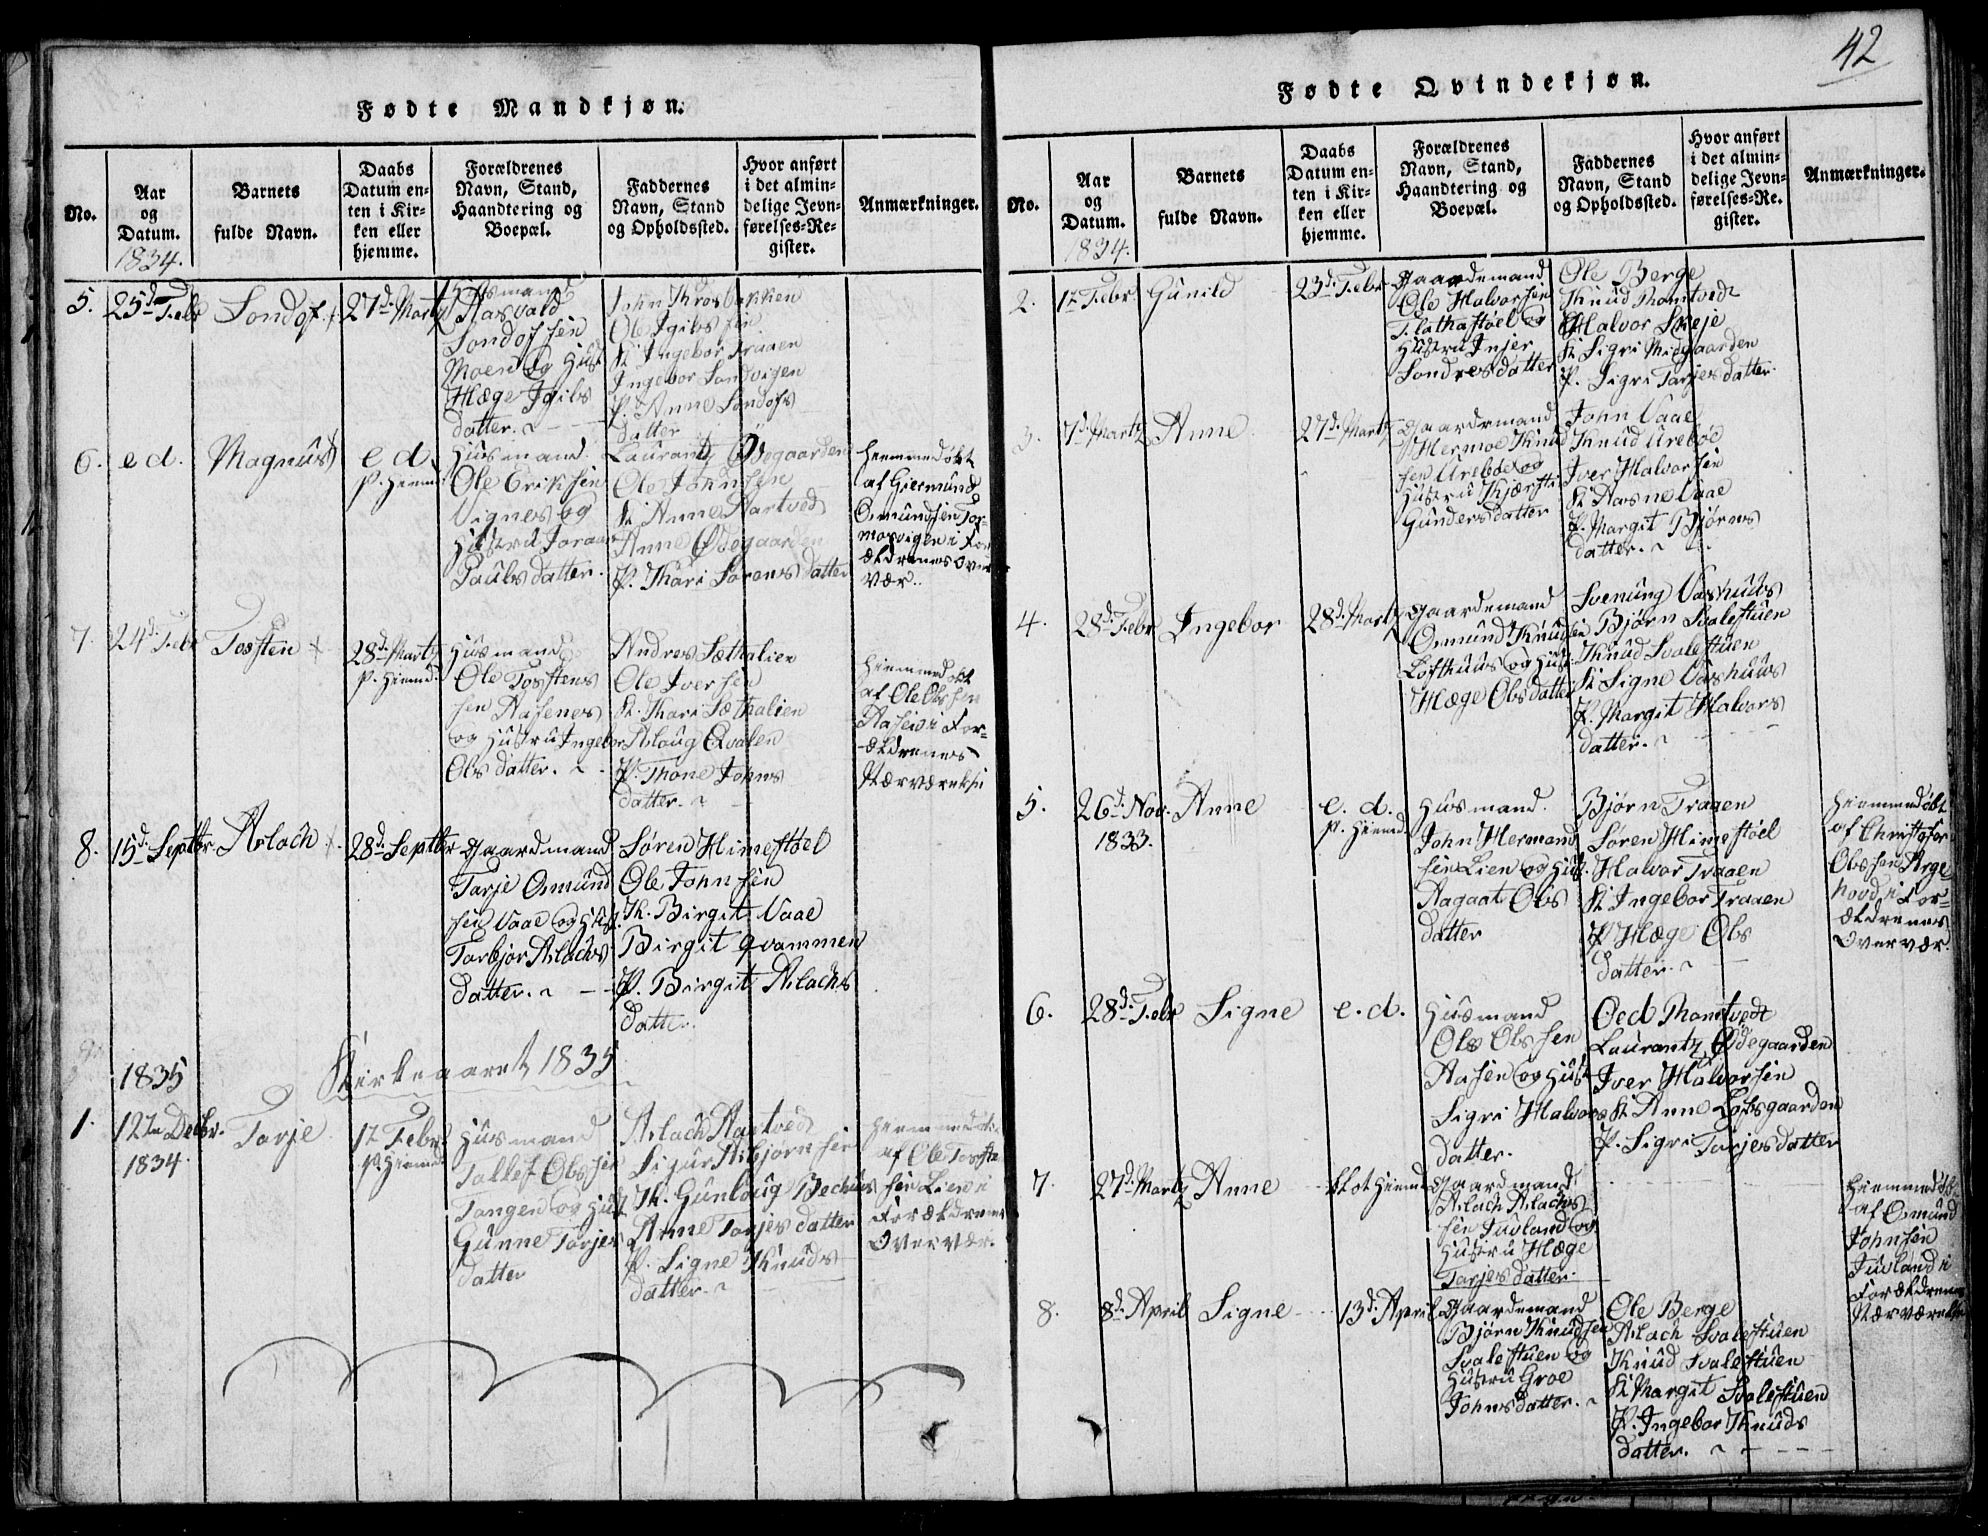 42
Fødte Mandkjøn.
No.
Aar
og
Datum.
1834.
Barnets
fulde Navn.
Daabs
Datum en-
ten i Kir-
ken eller
hjemme.
Forældrenes
Navn, Stand,
Haandtering og
Boepæl.
Faddernes
Navn, Stand
og Opholdssted.
Hvor anført
i det almin-
delige Jevn-
førelses-Re-
gister.
Anmærkninger.
5.
25d Febr
Sondof.
27d Martz
Husmand
Aasvald
Sondofsen
Moen og Hust
Hæge Igibs
datter.
John Krosbakken
Ole Igibssen
K Ingebor Traaen
Ingebor Sondvigen
P. Anne Sondofs
datter
6.
e d.
Magnus
e d.
P. Hiemd
Husmand
Ole Eriksen
Vignes og
Hustru Joraan
Paulsdatter.
Laurantz Ødegaarden
Ole Johnsen
K Anne Aartved
Anne Ødegaarden
P. Thari Sørensdatter
Hiemmedøbt
af Giermund
Omundsen Tor-
morvigen i For
ældrenes Over
vær.
7.
24d Febr
Tosten
28d Martz
P. Hiemd.
Husmand
Ole Tostens
sen Aasenes
og Hustru Ingebor
Olsdatter.
Andres Sæthalien
Ole Iversen
K. Thari Sæthalien
Aslaug Qvalen
P. Thone Johns
datter.
Hiemmedøbt
af Ole Olssen
Aasen i For-
ældrenes
Nærværelse
8.
15d Septbr.
Aslach
28d Septbr
Gaardmand
Tarje Omund
sen Vaae og Hust.
Torbjør Aslachs
datter.
Søren Himestøel
Ole Johnsen
K. Birgit Vaae
Birgit Qvammen
P. Birgit Aslachs
datter.
1835
Kirkeaaret 1835
1.
12te Decbr.
1834.
Tarje
1t Febr
P. Hiemd
Husmand
Tallef Olssen
Tangen og Hust
Gunne Tarjes
datter
Aslach Aartved
Sigur Asbjørnsen
K. Gunloug Bechus
Anne Tarjesdatter
P. Signe Knuds
datter.
Hiemmedøbt
af Ole Toste
sen Lien i
Forældrenes
Overvær.
Fødte Qvindekjøn.
No.
Aar
og
Datum.
1834.
Barnets
fulde Navn.
Daabs
Datum en-
ten i Kir-
ken eller
hjemme.
Forældrenes
Navn, Stand,
Haandtering og
Boepæl.
Faddernes
Navn, Stand
og Opholdssted.
Hvor anført
i det almin-
delige Jevn-
førelses-Re-
gister.
Anmærkninger.
2.
1t Febr.
Gunild
23d Febr
Gaardemand
Ole Halvorsen
Flathastøel og
Hustru Injer
Sondresdatter
Ole Berge
Knud Mandtvedt
Halvor Skeje
K Sigri Midgaarden
P. Sigri Tarjesdatter.
3.
7d Martz
Anne
27d Martz
Gaardemand
Hermoe Knud
sen Urebøe og
Hustru Kjærsti
Gundersdatter
John Vaae
Knud Urebøe
Iver Halvorsen
K Aasne Vaae
P. Margit Bjørns
datter.
4.
28d Febr
Ingebor
28d Martz
Gaardemand
Omund Knudsen
Lofthuus og Hust.
Hæge Olsdatter
Svenung Vashuus
Bjørn Svalestuen
Knud Svalestuen
K Signe Vashuus
P. Margit Halvors
datter.
5.
26d Nov.
1833.
Anne
e. d.
P. Hiemd.
Husmand.
John Hermand
sen Lien og Hust.
Aagaat Ols
datter
Bjørn Traaen
Søren Himestøel
Halvor Traaen
K Ingebor Traaen
P Hæge Ols
datter.
Hiemmedøbt
af Christofor
Olssen Arge
hovd i For-
ældrenes
Overvær.
6.
28d Febr
Signe
e. d.
Husmand
Ole Olssen
Aasen og Hust
Sigri Halvors
datter.
Oed Mandtvedt
Laurantz Ødegaarden
Iver Halvorsen
K Anne Lofsgaarden
P. Sigri Tarjesdatter
7.
27d Martz
Anne
blot Hiemd
Gaardmand
Aslach Aslachs
sen Juvland og
Hustru Hæge
Tarjesdatter.
Hiemmedøbt
af Omund
Johnsen
Juvland i
Forældrenes
Nærværelse
8.
8d April
Signe
13d April
Gaardemand
Bjørn Knudsen
Svalestuen og
Hustru Groe
Johnsdatter.
Ole Berge
Aslach Svalestuen
Knud Svalestuen
K Margit Svalestuen
P. Ingebor Knuds
datter.